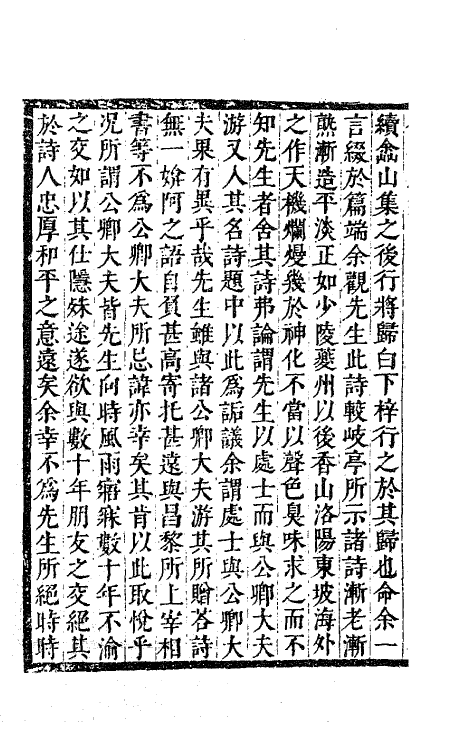 續盦山集之後行將歸白下梓行之於其歸也命余一
言綴於篇端余觀先生此詩較岐亭所示諸詩漸老漸
熟漸造平淡正如少陵夔州以後香山洛陽東坡海外
之作天機爛熳幾於神化不當以聲色臭味求之而不
知先生者舍其詩弗論謂先生以處士而與公卿大夫
游又入其名詩題中以此為詬議余謂處士與公卿大
夫果有異乎哉先生雖與諸公卿大夫游其所贈荅詩
無一媕阿之語自負甚高寄托甚遠與昌黎所上宰相
書等不為公卿大夫所忌諱亦幸矣其肯以此取悅乎
況所謂公卿大夫皆先生向時風雨寤寐數十年不渝
之交如以其仕隱殊途遂欲與數十年朋友之交絕其
於詩人忠厚和平之意遠矣余幸不為先生所絕時時